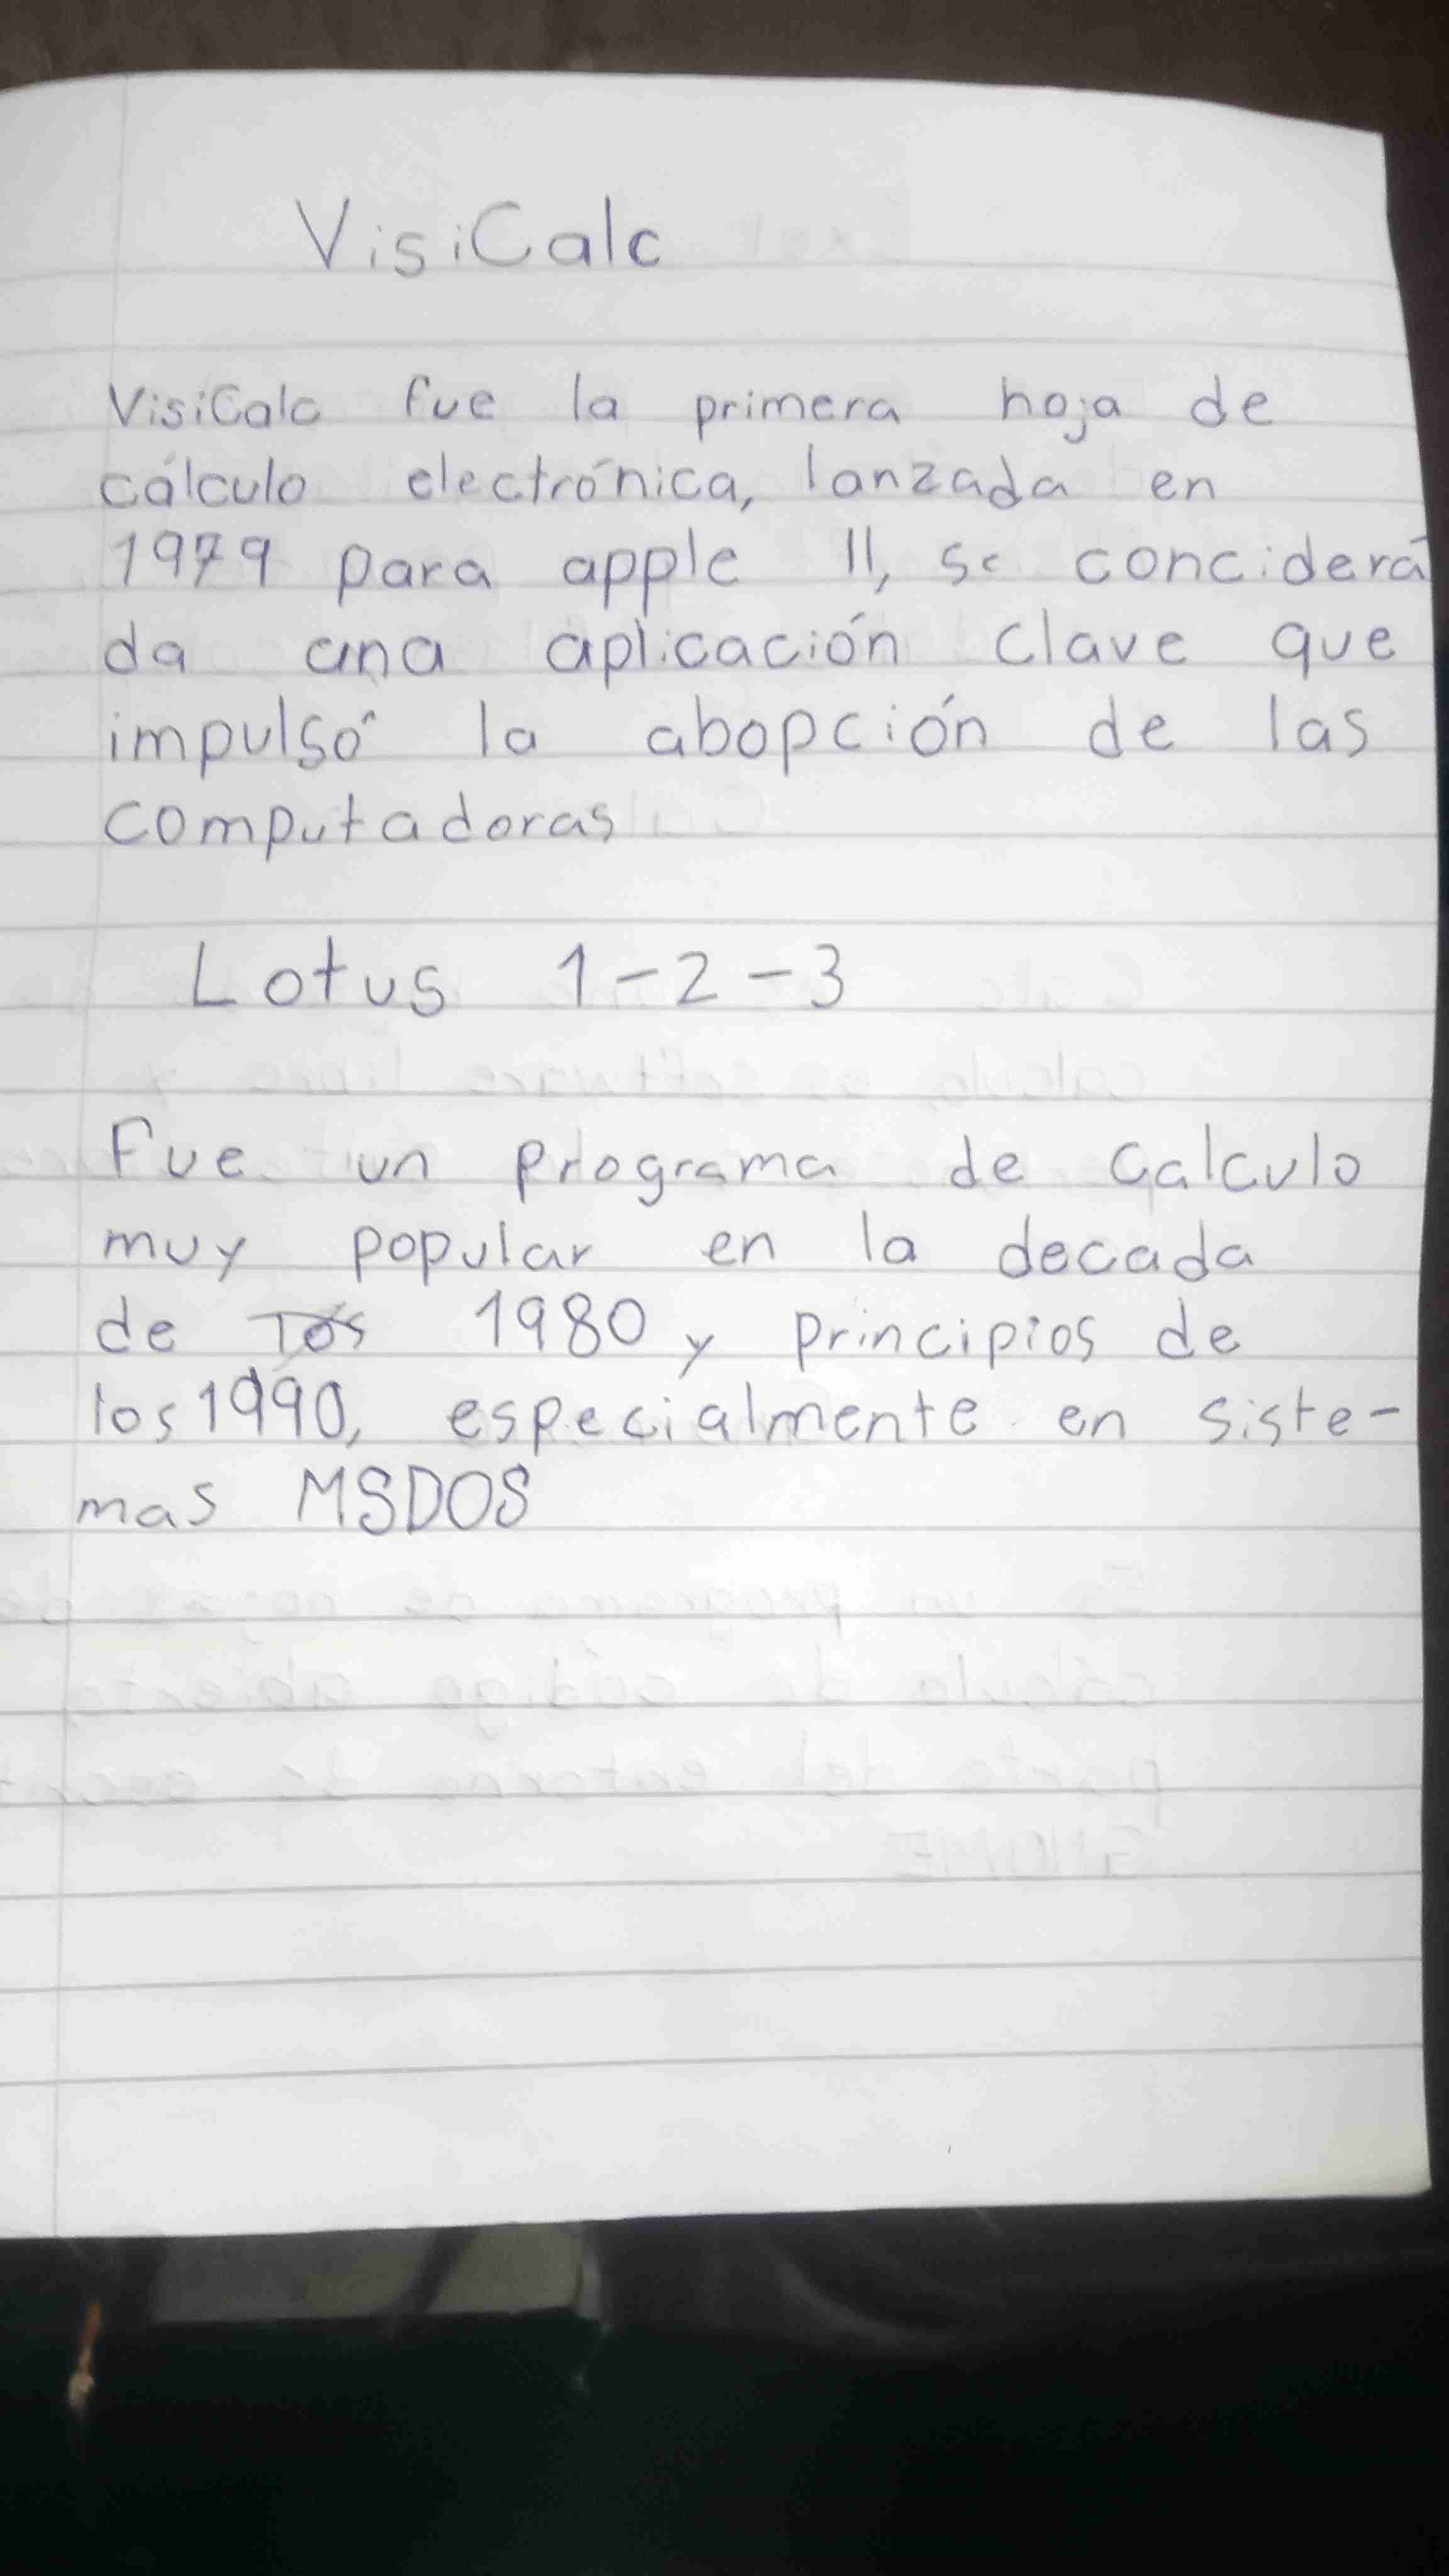 VisiCalc
VisiCalc fue la primera hoja de
cálculo electrónica, lanzada en
1979 para apple II, se conciderá
da una aplicación clave que
impulsó la abopción de las
computadoras
Lotus 1-2-3
Fue un programa de Calculo
muy popular en la decada
de los 1980 y principios de
los 1990, especialmente en siste-
mas MSDOS